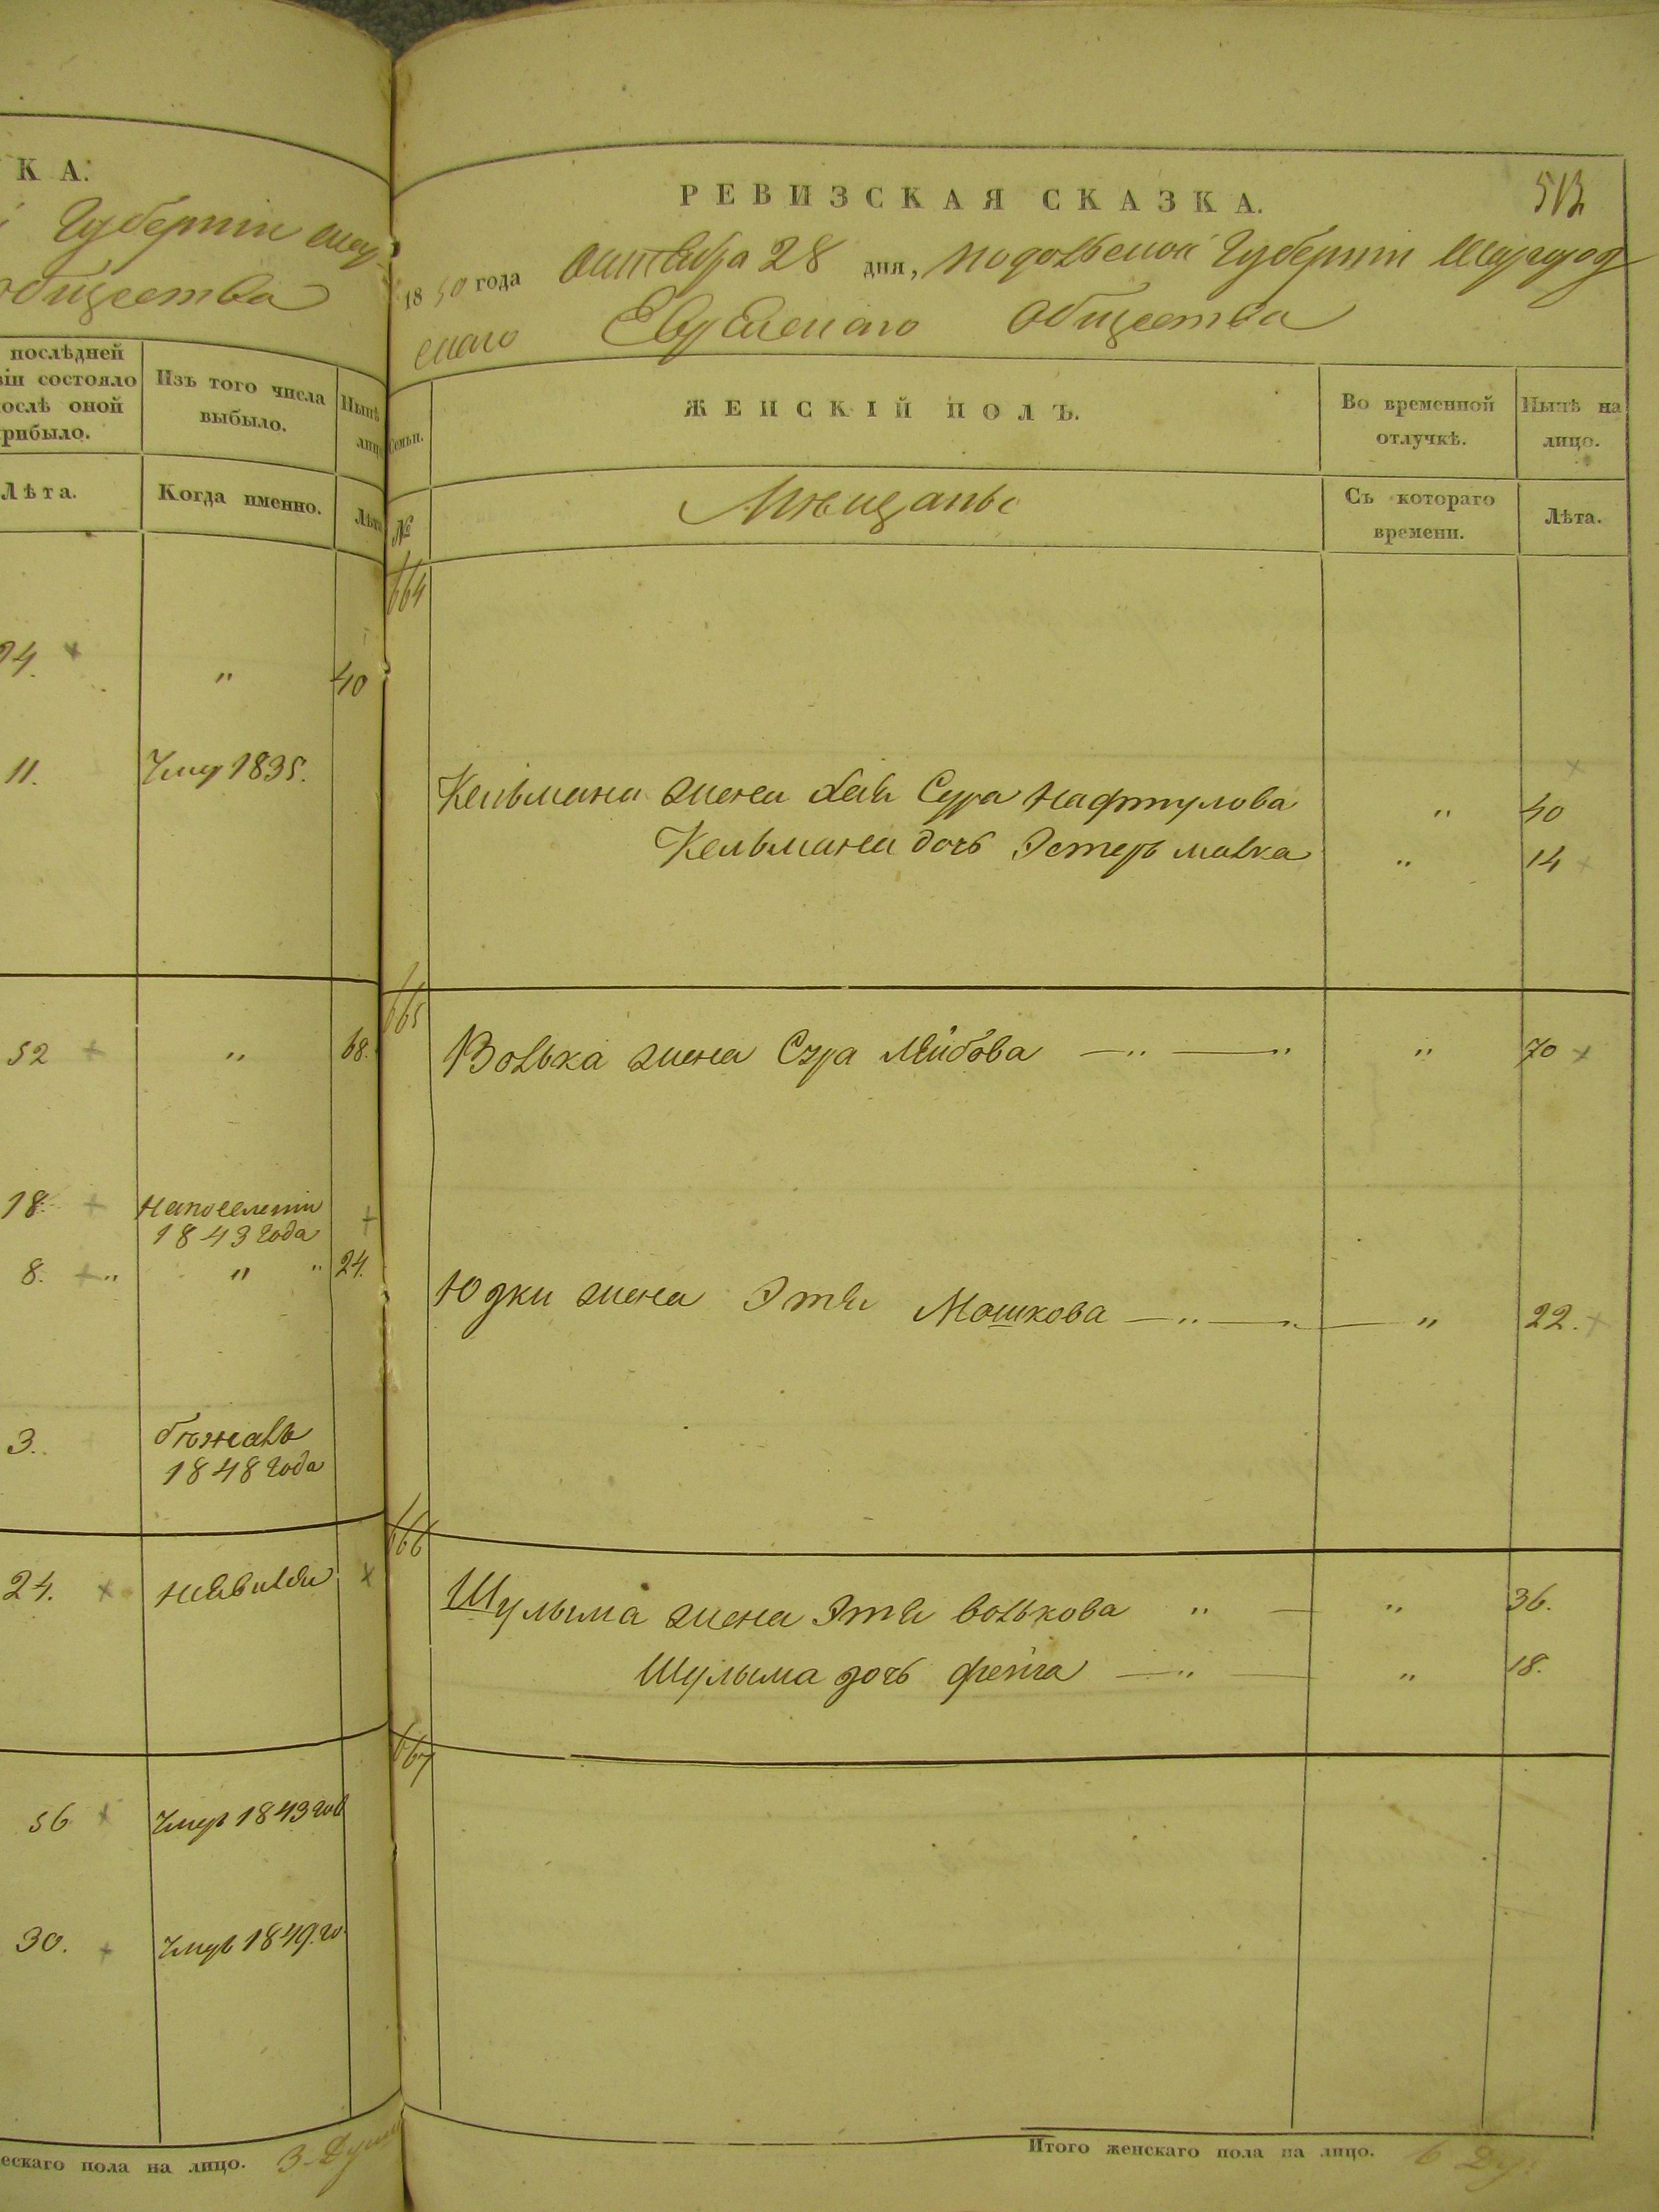 К А.
Губернiи
общества
послѣдней
состояло
послѣ оной
прибыло.
Изъ того числа
выбыло.
Нынѣ
лицо
Лѣта.
Когда именно.
Лѣта
11.
Умер 1835.
40
52
"
68.
18.
1843 года
8.
"
"
24.
3.
бѣжалъ
1848 года
24.
56
Умеръ 1843 год
30.
Умеръ 1849. го
ескаго пола на лицо. 3. Души
РЕВИЗСКАЯ СКАЗКА.
513
1850 года Октября 28 дня, Подольской Губернiи Шаргород
скаго Еврейскаго Общества
Семьи.
ЖЕНСКІЙ ПОЛЪ.
Во временной
отлучкѣ.
Нынѣ на
лицо.
№
Мѣщанъ
Съ котораго
времени.
Лѣта.
664
Кельмана жена Сура Нафтулова " 40
Кельмана дочь Эстеръ малка " 14
665
Волька жена Сура Лейбова — " — " " 70
Юдки жена Этя Мошкова — " — " — " 22.
666
Шулыма жена Этя Волькова " — " 36.
Шулыма дочь Фейга — " — " 18.
667
Итого женскаго пола на лицо. 6 Ду.